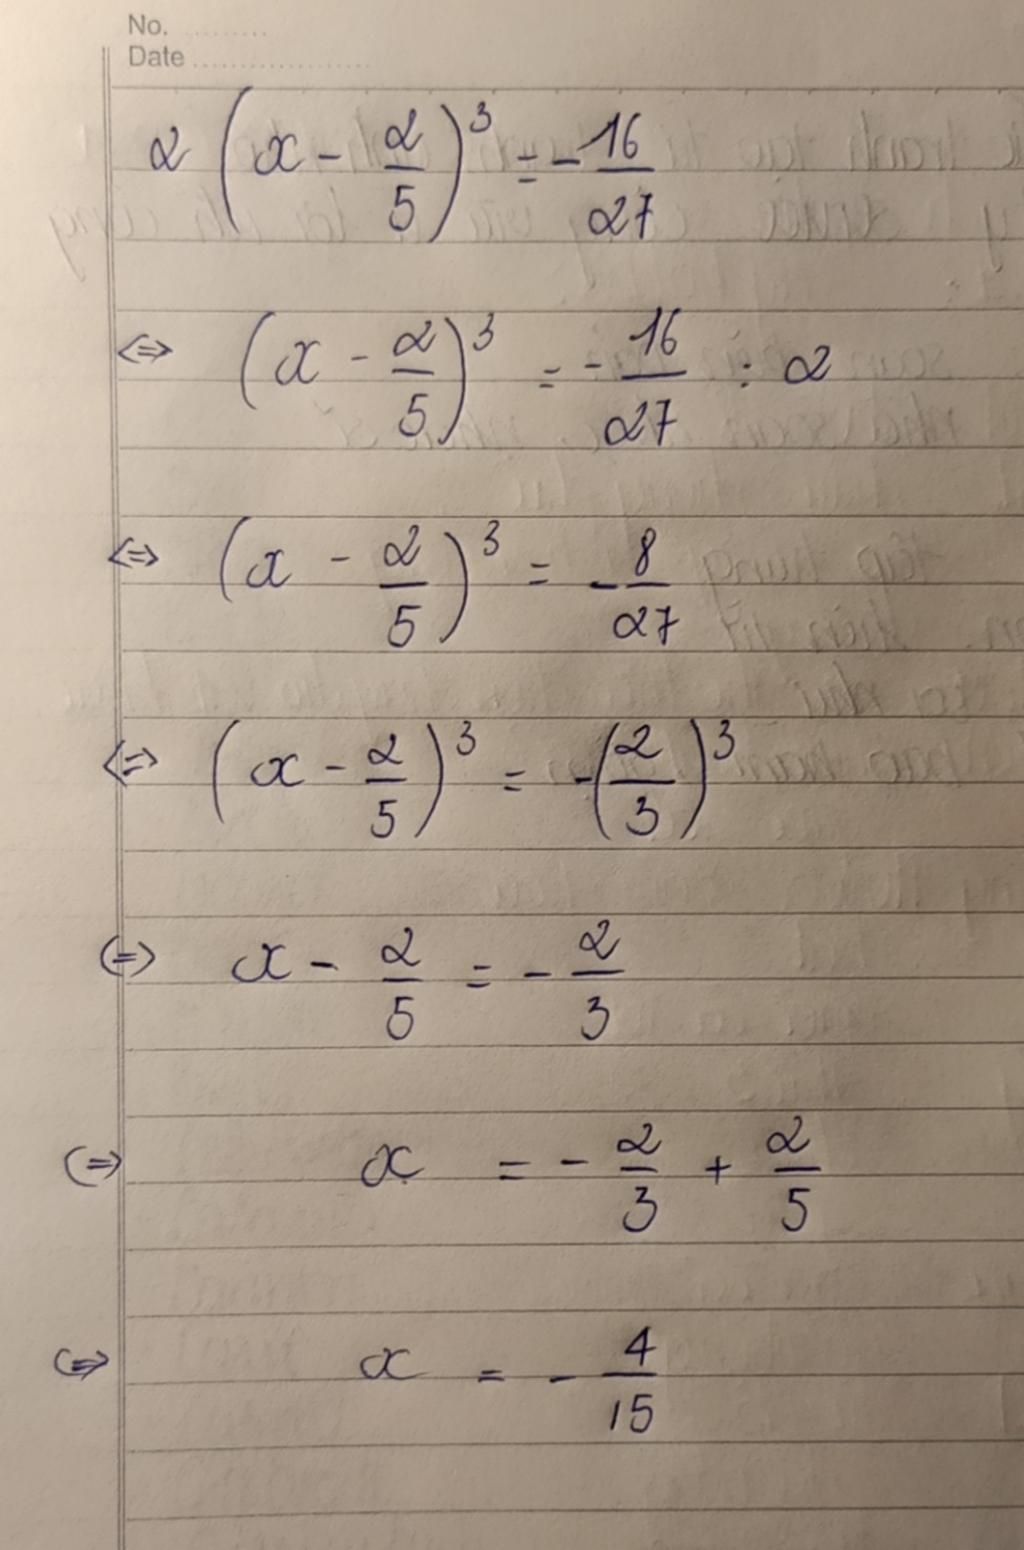 No. ..........
Date ....................
2 (x - 2/5)³ = - 16/27
<=> (x - 2/5)³ = - 16/27 : 2
<=> (x - 2/5)³ = - 8/27
<=> (x - 2/5)³ = - (2/3)³
<=> x - 2/5 = - 2/3
<=> x = - 2/3 + 2/5
<=> x = - 4/15